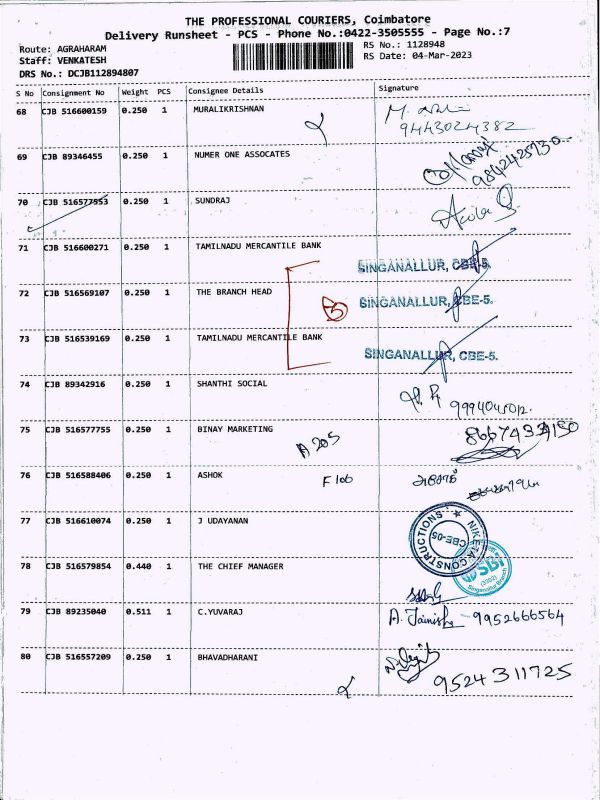 THE PROFESSIONAL COURIERS, Coimbatore
Delivery Runsheet - PCS - Phone No.:0422-3505555 - Page No.:7
Route: AGRAHARAM RS No.: 1128948
Staff: VENKATESH RS Date: 04-Mar-2023
DRS No.: DCJB112894807
S No Consignment No Weight PCS Consignee Details Signature
68 CJB 516600159 0.250 1 MURALIKRISHNAN
9443024382
69 CJB 89346455 0.250 1 NUMER ONE ASSOCATES
70 CJB 516577553 0.250 1 SUNDRAJ
71 CJB 516600271 0.250 1 TAMILNADU MERCANTILE BANK SINGANALLUR, CBE-5.
72 CJB 516569107 0.250 1 THE BRANCH HEAD SINGANALLUR, CBE-5.
73 CJB 516539169 0.250 1 TAMILNADU MERCANTILE BANK SINGANALLUR, CBE-5.
74 CJB 89342916 0.250 1 SHANTHI SOCIAL
75 CJB 516577755 0.250 1 BINAY MARKETING A 205
76 CJB 516588406 0.250 1 ASHOK F 106
77 CJB 516610074 0.250 1 J UDAYANAN NIKETA CONSTRUCTIONS CBE-05
78 CJB 516579854 0.440 1 THE CHIEF MANAGER SBI Singanallur Branch
79 CJB 89235040 0.511 1 C.YUVARAJ 9952666564
80 CJB 516557209 0.250 1 BHAVADHARANI 9524311725